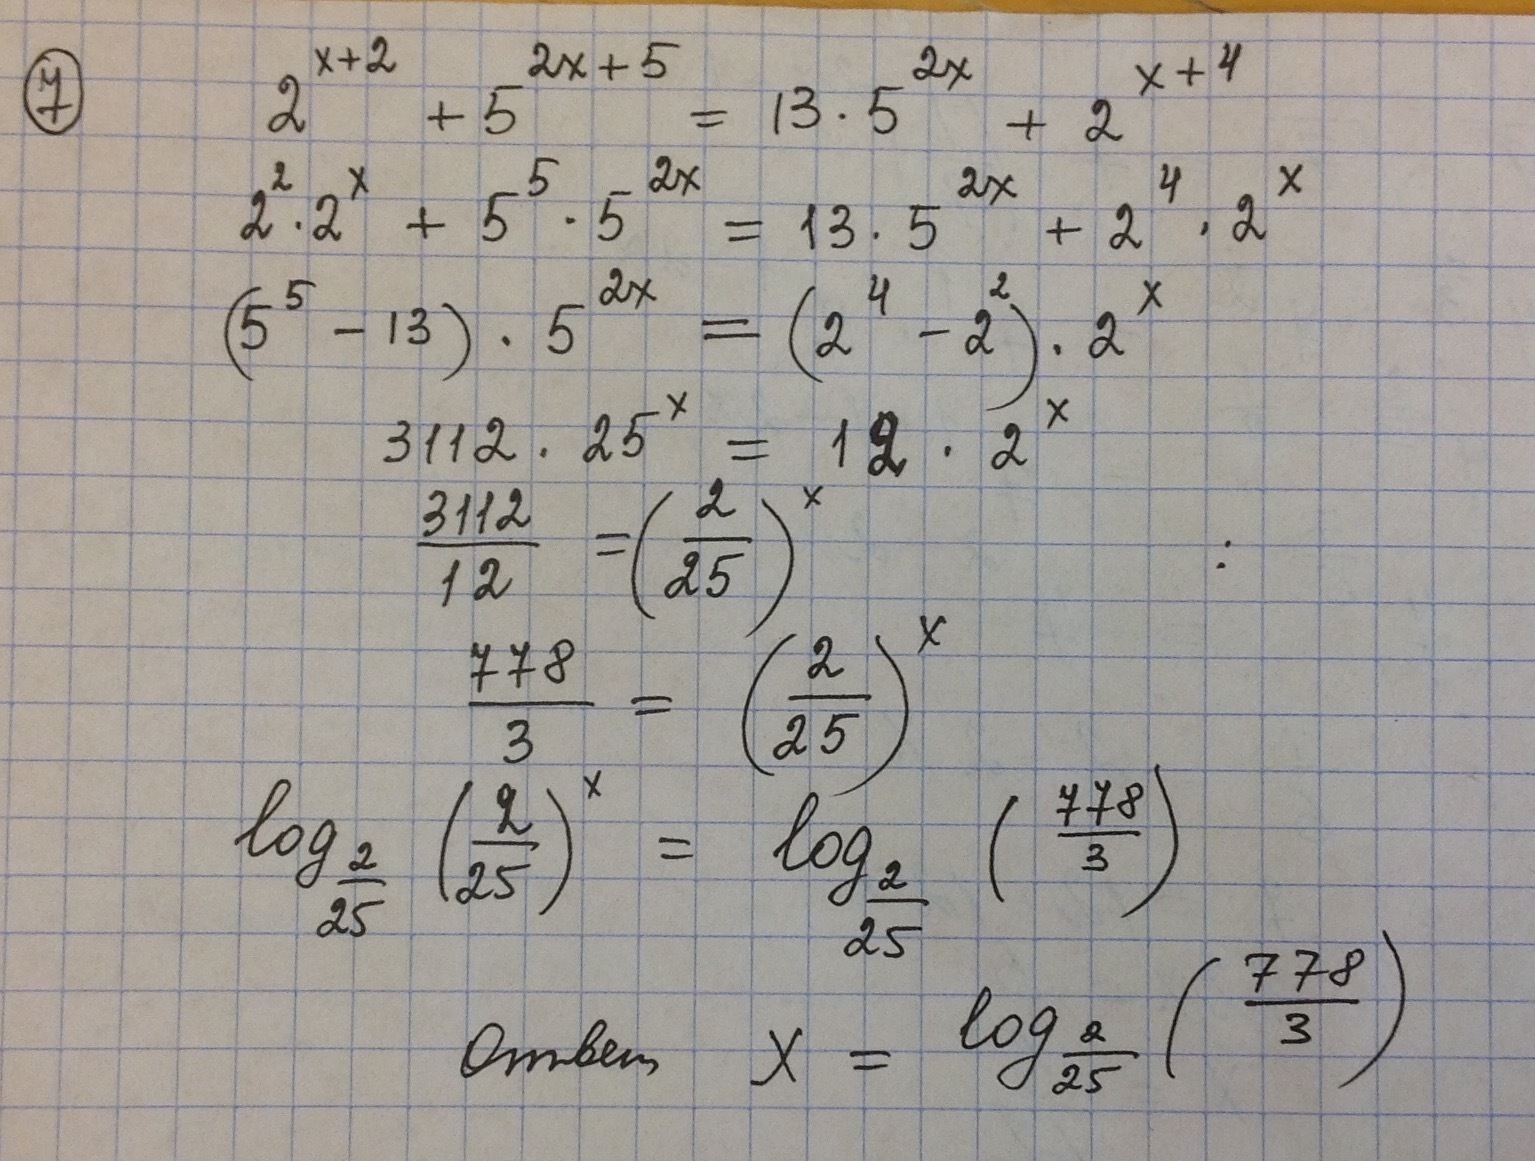 7 2^{x+2} + 5^{2x+5} = 13 · 5^{2x} + 2^{x+4}
2^2 · 2^x + 5^5 · 5^{2x} = 13 · 5^{2x} + 2^4 · 2^x
(5^5 - 13) · 5^{2x} = (2^4 - 2^2) · 2^x
3112 · 25^x = 12 · 2^x
3112/12 = (2/25)^x :
778/3 = (2/25)^x
log_{2/25} (2/25)^x = log_{2/25} (778/3)
Ответ x = log_{2/25} (778/3)